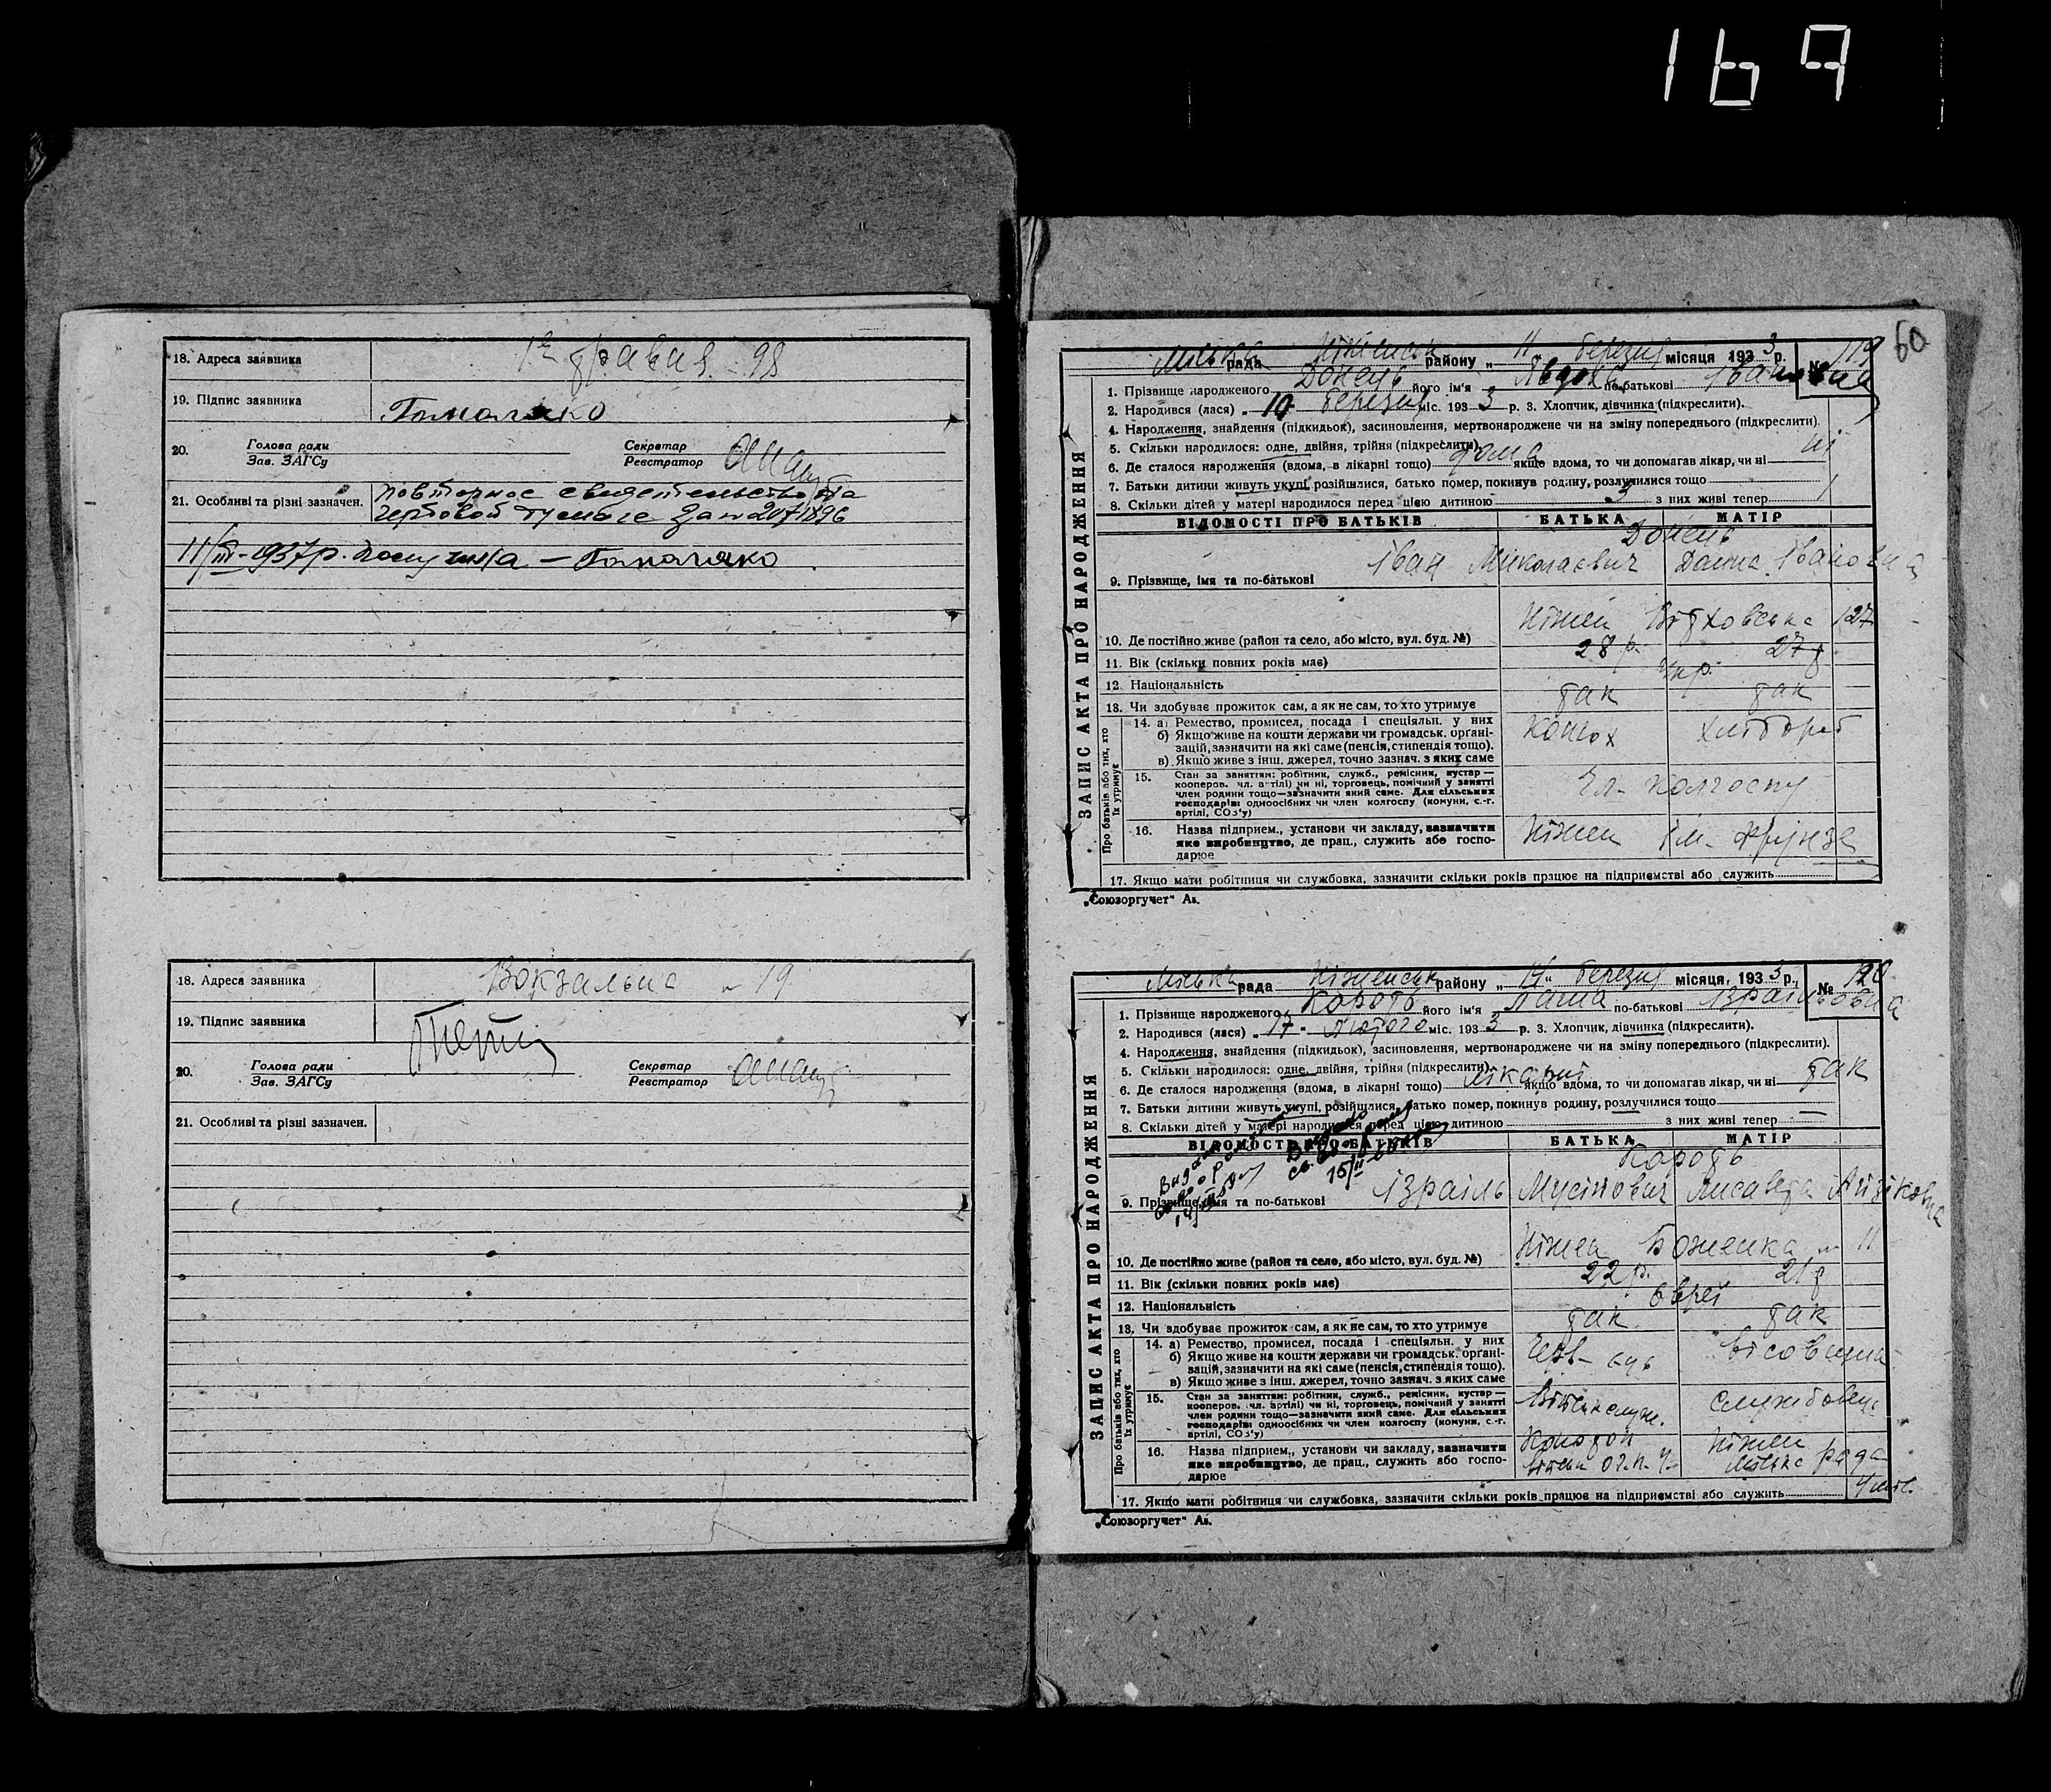 169
18. Адреса заявника 1го травня - 98
19. Підпис заявника Гомоляко
20. Голова ради
Зав. ЗАГСу
Секретар
Реєстратор
21. Особливі та різні зазначен. Повторное свидетельство на
гербовой бумаге за №
11/III-1937р. Получила - Гомоляко
18. Адреса заявника Вокзальна № 19
19. Підпис заявника
20. Голова ради
Зав. ЗАГСу
Секретар
Реєстратор
21. Особливі та різні зазначен.
60
ЗАПИС АКТА ПРО НАРОДЖЕННЯ
Міська рада Ніженськ району „ 11 березня місяця 1933 р. № 119
1. Прізвище народженого Донець його ім'я Явдоха по-батькові Іванівна
2. Народився (лася) „ 10 березня міс. 1933 р. 3. Хлопчик, дівчинка (підкреслити).
4. Народження, знайдення (підкидьок), засиновлення, мертвонароджене чи на зміну попереднього (підкреслити).
5. Скільки народилося: одне, двійня, трійня (підкреслити)
6. Де сталося народження (вдома, в лікарні тощо) дома якщо вдома, то чи допомагав лікар, чи ні ні
7. Батьки дитини живуть укупі, розійшлися, батько помер, покинув родину, розлучилися тощо
8. Скільки дітей у матері народилося перед цією дитиною 3 з них живі тепер 1
ВІДОМОСТІ ПРО БАТЬКІВ БАТЬКА МАТІР
Донець
9. Прізвище, імя та по-батькові Іван Миколаєвич Івановна
10. Де постійно живе (район та село, або місто, вул. буд. №) Ніжен 127
11. Вік (скільки повних років має) 28 р. 27 р
12. Національність Укр.
13. Чи здобуває прожиток сам, а як не сам, то хто утримує так так
Про батьків або тих, хто їх утримує
14. а) Ремество, промисел, посада і спеціяльн. у них
б) Якщо живе на кошти держави чи громадськ. органі-
зацій, зазначити на які саме (пенсія, стипендія тощо).
в) Якщо живе з інш. джерел, точно зазнач. з яких саме
Конюх хлібороб
15. Стан за заняттям: робітник, служб., ремісник, кустар —
кооперов. чл. артілі) чи ні, торговець, помічний у занятті
член родини тощо—зазначити який саме. Для сільських
господарів: одноосібних чи член колгоспу (комуни, с.-г.
артілі, СОЗ'у)
Чл- колгоспу
16. Назва підприєм., установи чи закладу, зазначити
яке виробництво, де прац., служить або госпо-
дарює
Ніжен ім. Фрунзе
17. Якщо мати робітниця чи службовка, зазначити скільки років працює на підприємстві або служить
„Союзоргучет“ Ак.
ЗАПИС АКТА ПРО НАРОДЖЕННЯ
Міська рада Ніженськ району „ 11 “ березня місяця, 1933 р., № 120
1. Прізвище народженого Король його ім'я по-батькові Ізраїльовна
2. Народився (лася) „ 17 - лютого міс. 1933 р. 3. Хлопчик, дівчинка (підкреслити).
4. Народження, знайдення (підкидьок), засиновлення, мертвонароджене чи на зміну попереднього (підкреслити).
5. Скільки народилося: одне, двійня, трійня (підкреслити)
6. Де сталося народження (вдома, в лікарні тощо) лікарні якщо вдома, то чи допомагав лікар, чи ні так
7. Батьки дитини живуть укупі, розійшлися, батько помер, покинув родину, розлучилися тощо
8. Скільки дітей у матері народилося перед цією дитиною — з них живі тепер —
ВІДОМОСТІ ПРО БАТЬКІВ БАТЬКА МАТІР
Король
9. Прізвище, імя та по-батькові Ізраїль Мусійович Лисавета Айзіковна
10. Де постійно живе (район та село, або місто, вул. буд. №) Ніжен Боженка № 11
11. Вік (скільки повних років має) 22 р. 21 р
12. Національність Євреї
13. Чи здобуває прожиток сам, а як не сам, то хто утримує так так
Про батьків або тих, хто їх утримує
14. а) Ремество, промисел, посада і спеціяльн. у них
б) Якщо живе на кошти держави чи громадськ. органі-
зацій, зазначити на які саме (пенсія, стипендія тощо).
в) Якщо живе з інш. джерел, точно зазнач. з яких саме
15. Стан за заняттям: робітник, служб., ремісник, кустар —
кооперов. чл. артілі) чи ні, торговець, помічний у занятті
член родини тощо—зазначити який саме. Для сільських
господарів одноосібних чи член колгоспу (комуни, с.-г.
артілі, СОЗ'у)
службовець
16. Назва підприєм., установи чи закладу, зазначити
яке виробництво, де прац., служить або госпо-
дарює
Конотоп Ніжен
міська рада
17. Якщо мати робітниця чи службовка, зазначити скільки років працює на підприємстві або служить 4 міс.
„Союзоргучет“ Ак.